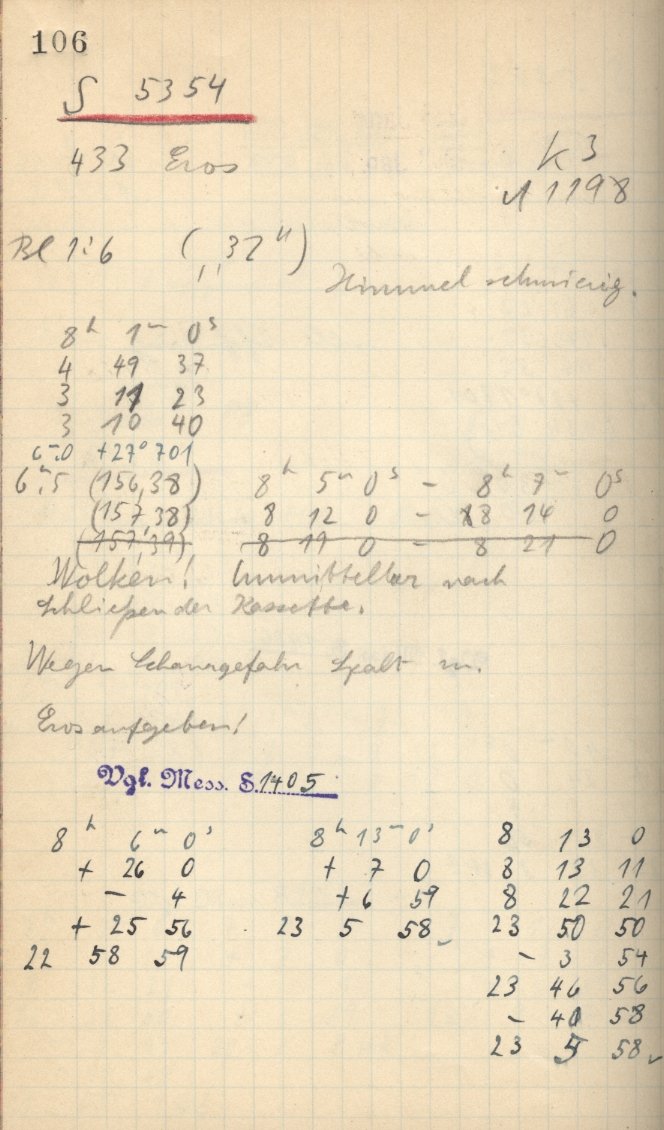 106
S 5354
433 Eros
K 3
1198
Bl 1:6 (,,32")
Himmel schmierig.
8ʰ 1ᵐ 0ˢ
4 49 37
3 11 23
3 10 40
6ᵐ.0 +27° 701
6ᵐ.5 (156,38) 8ʰ 5ᵐ 0ˢ – 8ʰ 7ᵐ 0ˢ
(157,38) 8 12 0 – 8 14 0
(157,39) 8 19 0 – 8 21 0
Wolken! Unmittelbar nach
Schließen der Kassette.
Wegen Schauergefahr Spalt zu.
Eros aufgeben!
Vgl. Mess. S. 1405
8ʰ 6ᵐ 0ˢ 8ʰ 13ᵐ 0ˢ 8 13 0
+ 26 0 + 7 0 8 13 11
– 4 + 6 59 8 22 21
+ 25 56 23 5 58 23 50 50
22 58 59 – 3 54
23 46 56
– 40 58
23 5 58